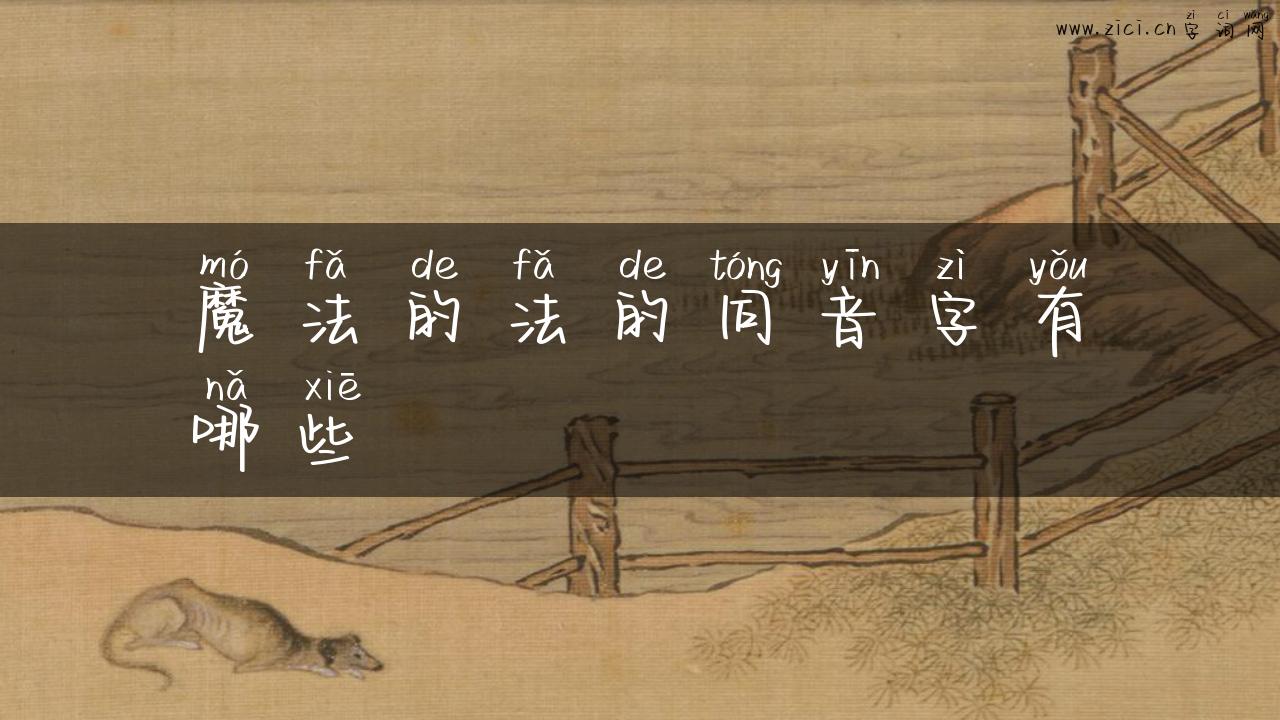 zì cí wǎng
www.zici.cn 字词网
mó fǎ de fǎ de tóng yīn zì yǒu
魔法的法的同音字有
nǎ xiē
哪些